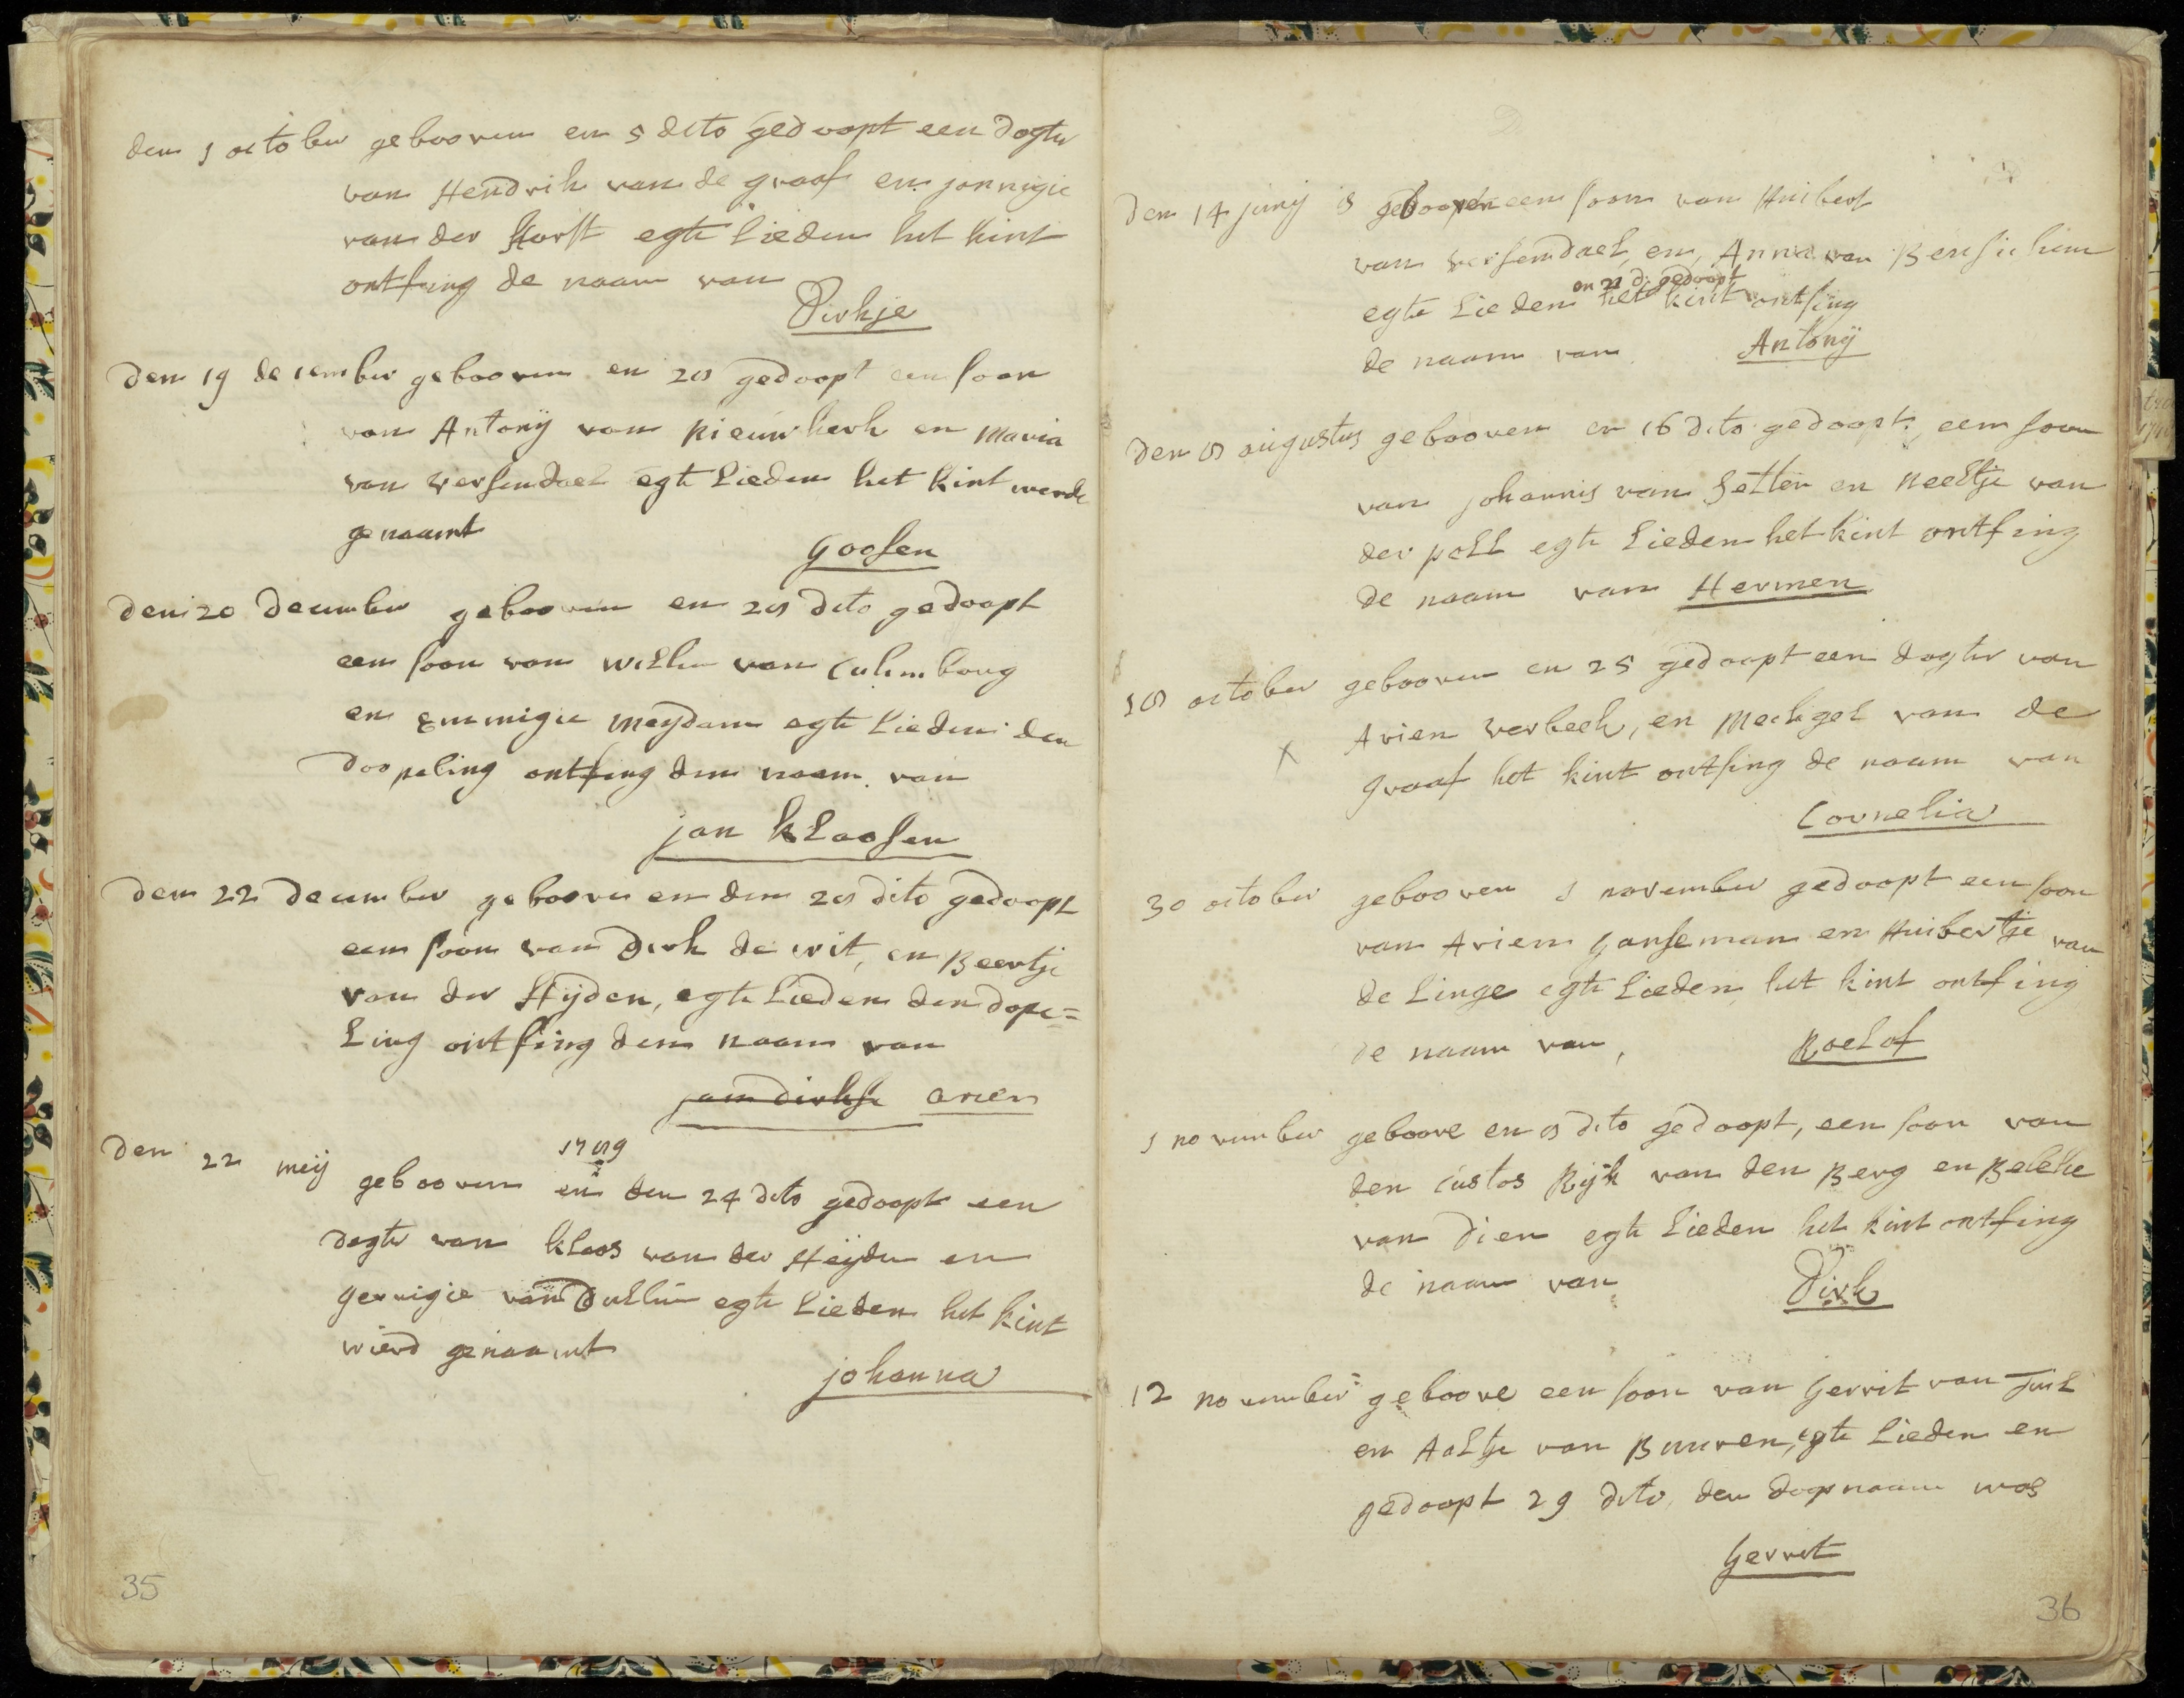 den 1 october gebooren en 5 dito gedoopt een dogter
van Hendrik van de graaf en jannigie
van der Horst egte Lieden het kint
ontfing de naam van
Dirkje
den 19 december gebooren en 28 gedoopt een soon
van Antonÿ van Nieuwkerk en Maria
van Versendael egte Lieden het kint werde
genaamt
Goosen
den 20 december gebooren en 28 dito gedoopt
een soon van Willem van Culemborg
en Emmigie Meydam egte Lieden den
doopeling ontfing den naam van
jan klaasen
den 22 december gebooren en den 28 dito gedoopt
een soon van Dirk de wit, en Beertje
van der Hÿden, egte Lieden den dope=
Ling ontfing den naam van
jan dirkse arien
1789
den 22 meÿ gebooren en den 24 dito gedoopt een
dogter van klaas van der Heÿden en
gerrigie van Dullim egte Lieden het kint
wierd genaamt
johanna
35
den 14 junÿ is gebooren een soon van Huibert
van versendael en, Anna van
en 21 d: gedoopt
egte Lieden het kint ontfing
de naam van Antonÿ
den 8 augustus gebooren en 16 dito gedoopt, een soon
van johannis van Setten en Neeltje van
der poll egte Lieden het kint ontfing
de naam van Hermen
18 october gebooren en 25 gedoopt een dogter van
X Arien verbeek, en Mechgel van de
graaf het kint ontfing de naam van
Cornelia
30 october gebooren 1 november gedoopt een soon
van Arien Hanseman en Huibertje van
de Linge egte Lieden het kint ontfing
de naam van, Roelof
1 november geboore en 8 dito gedoopt, een soon van
den custos Rÿk van den Berg en Beletie
van Dien egte Lieden het kint ontfing
de naam van Dirk
12 november geboore een soon van Gerrit van Tuil
en Aaltje van Buuren, egte Lieden en
gedoopt 29 dito, den doopnaam was
Gerrit
36